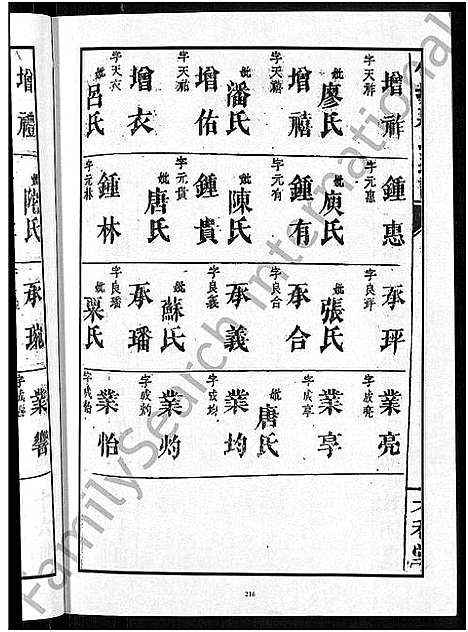 增祚
字天祚
妣廖氏
增禧
字天禧
妣潘氏
增佑
字天祐
增衣
字天衣
妣呂氏
鍾惠
字元惠
妣庾氏
鍾有
字元有
妣陳氏
鍾貴
字元貴
妣唐氏
鍾林
字元林
承玶
字良玶
妣張氏
承合
字良合
承義
字良義
妣蘇氏
承璠
字良璠
妣梁氏
業亮
字成亮
業享
字成享
妣唐氏
業均
字成均
業灼
字成灼
業怡
字成怡
增禮
妣陀氏
承琬
業響
216
FamilySearch International